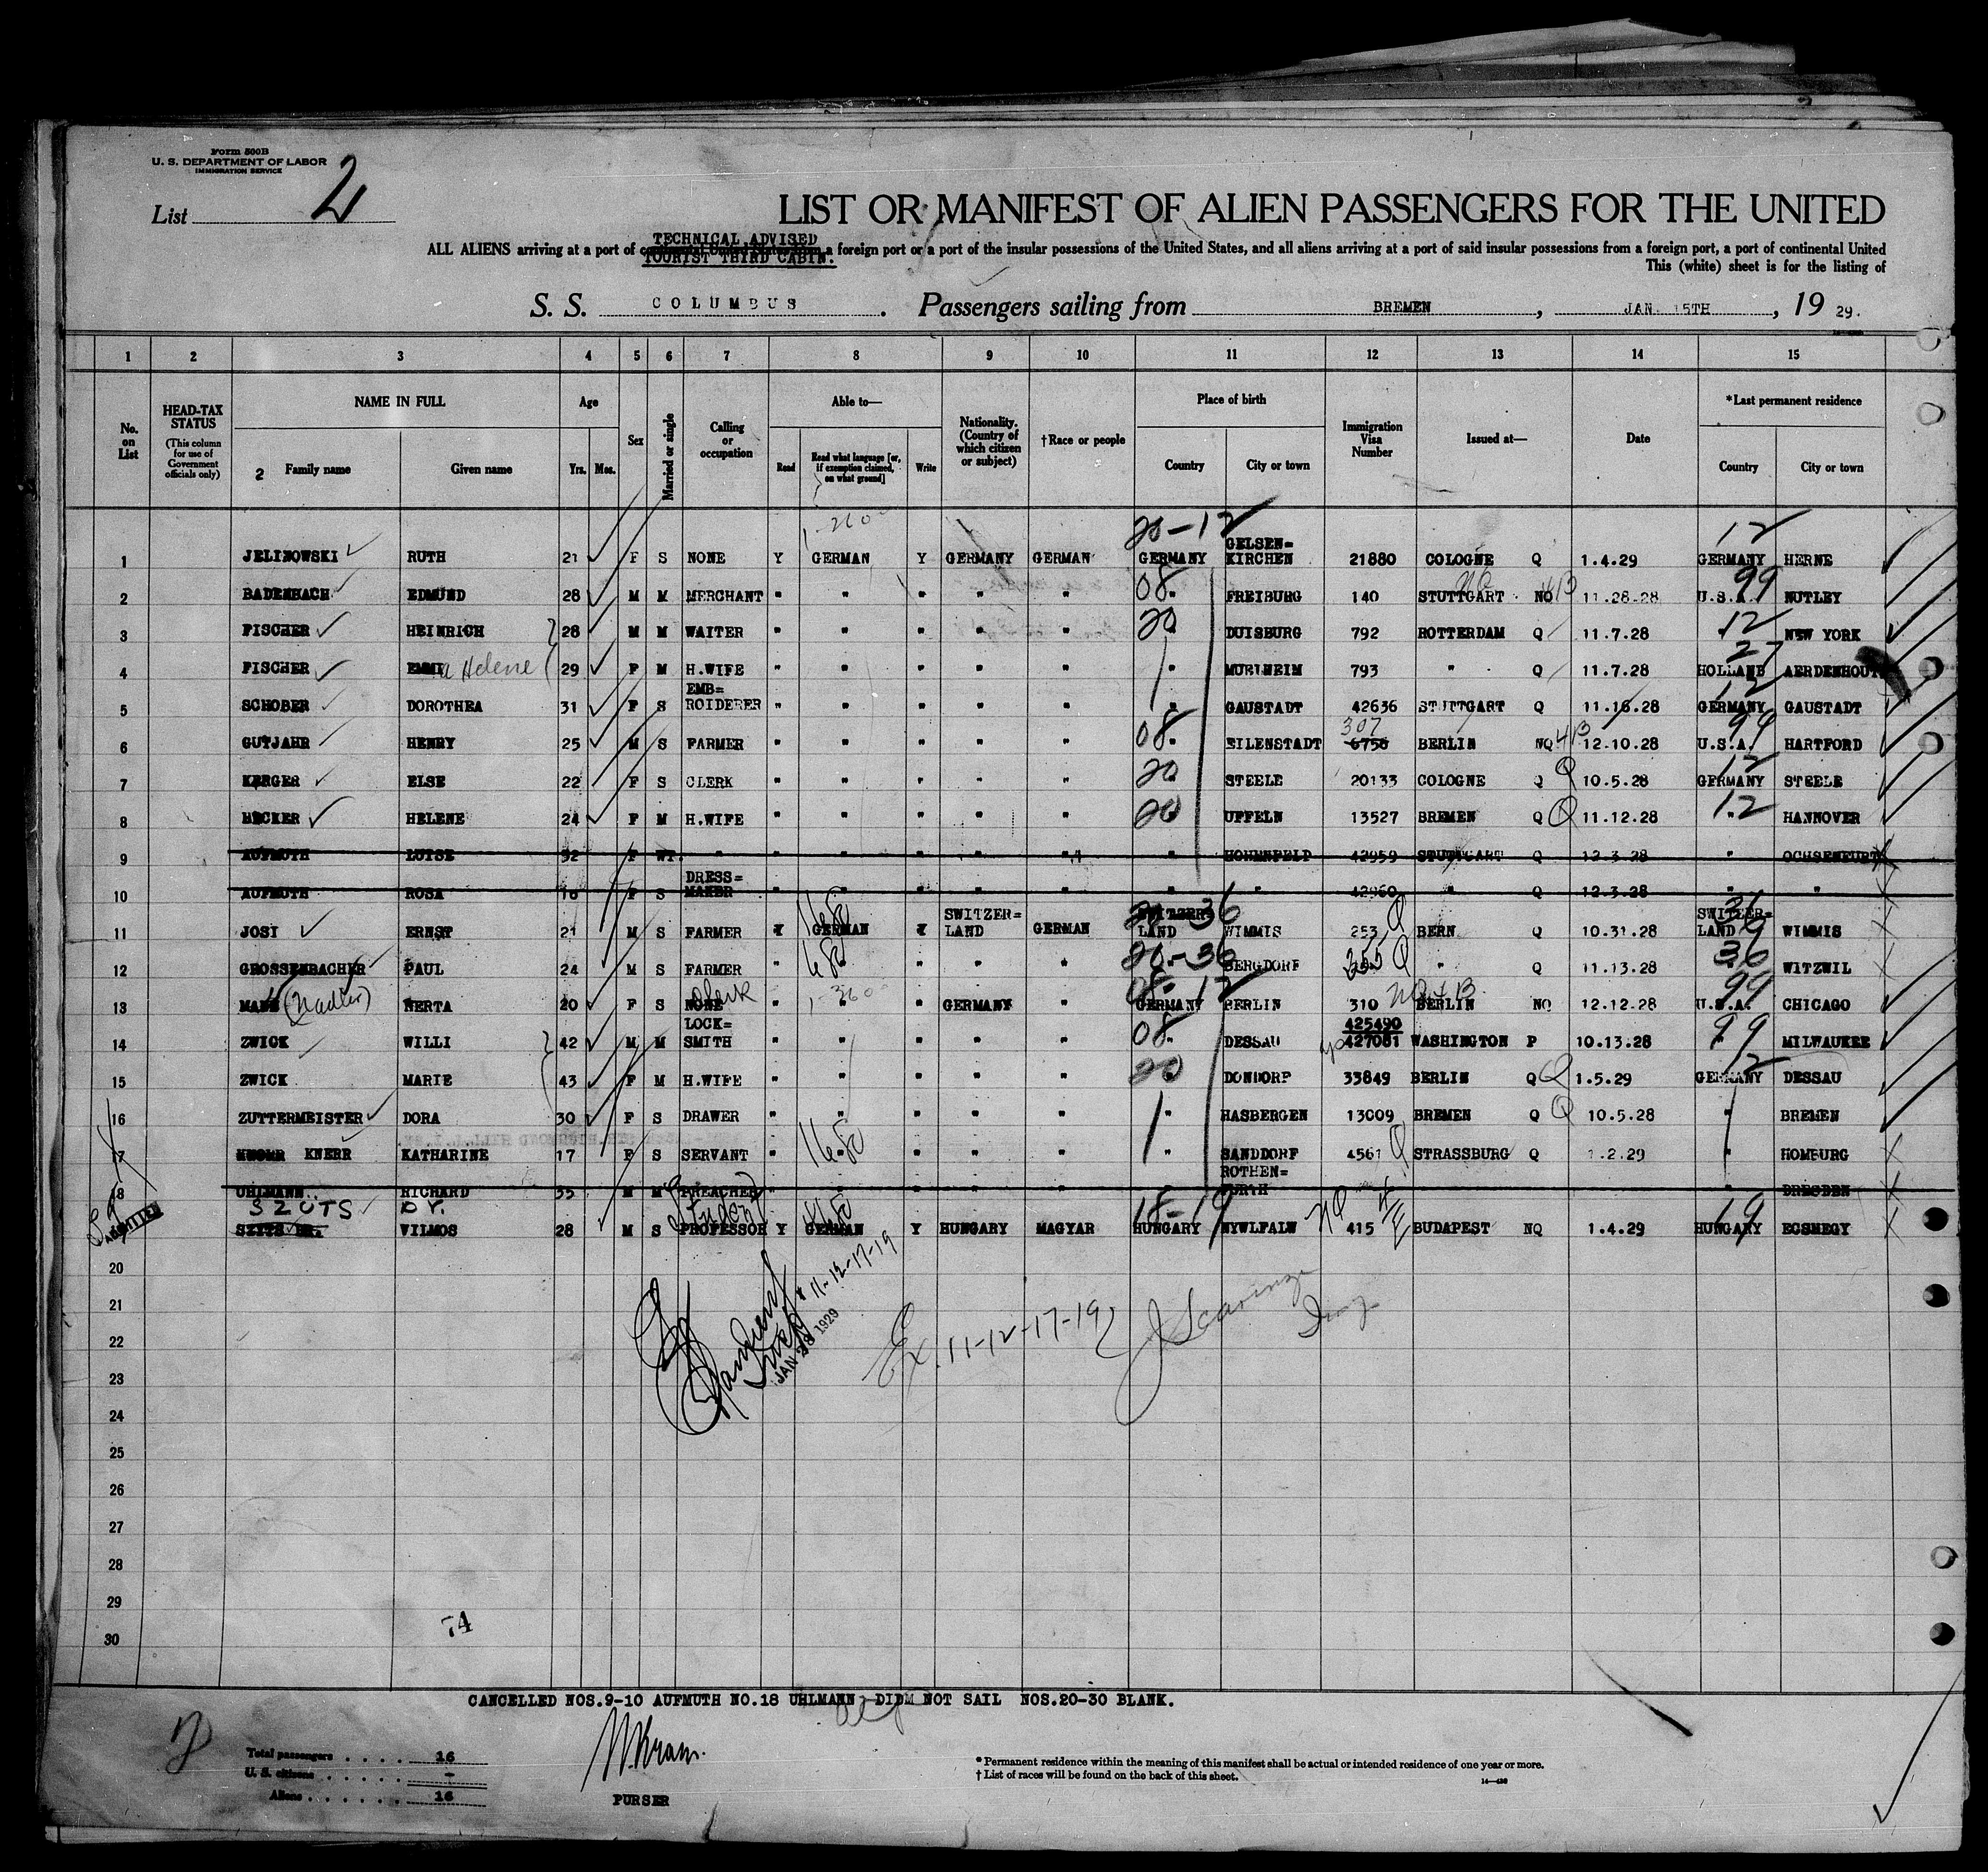 Form 500B
U. S. DEPARTMENT OF LABOR
IMMIGRATION SERVICE
List 2
LIST OR MANIFEST OF ALIEN PASSENGERS FOR THE UNITED
TECHNICAL ADVISED
ALL ALIENS arriving at a port of continental United States from a foreign port or a port of the insular possessions of the United States, and all aliens arriving at a port of said insular possessions from a foreign port, a port of continental United
TOURIST THIRD CABIN.
This (white) sheet is for the listing of
S. S. COLUMBUS. Passengers sailing from BREMEN, JAN. 15TH, 19 29.
1 2 3 4 5 6 7 8 9 10 11 12 13 14 15
No. on List
HEAD-TAX STATUS (This column for use of Government officials only)
NAME IN FULL
2 Family name Given name
Age Yrs. Mos.
Sex
Married or single
Calling or occupation
Able to—
Read Read what language [or, if exemption claimed, on what ground] Write
Nationality. (Country of which citizen or subject)
†Race or people
Place of birth
Country City or town
Immigration Visa Number
Issued at—
Date
*Last permanent residence
Country City or town
20-12 12
1 JELINOWSKI RUTH 21 F S NONE Y GERMAN Y GERMANY GERMAN GERMANY GELSEN=KIRCHEN 21880 COLOGNE Q 1.4.29 GERMANY HERNE
2 BADENBACH EDMUND 28 M M MERCHANT " " " " " 08 " FREIBURG 140 STUTTGART NQ 4B 11.28.28 U.S.A. 99 NUTLEY
3 FISCHER HEINRICH 28 M M WAITER " " " " " 20 DUISBURG 792 ROTTERDAM Q 11.7.28 " 12 NEW YORK
4 FISCHER EMMI Helene 29 F M H.WIFE " " " " " " MURLHEIM 793 " Q 11.7.28 HOLLAND 27 AERDENHOUT
5 SCHOBER DOROTHEA 31 F S EMB=ROIDERER " " " " " " GAUSTADT 42636 STUTTGART Q 11.16.28 GERMANY 12 GAUSTADT
6 GUTJAHR HENRY 25 M S FARMER " " " " " 08 " EILENSTADT 307 6756 BERLIN NQ 4B 12.10.28 U.S.A. 99 HARTFORD
7 KERGER ELSE 22 F S CLERK " " " " " 20 STEELE 20133 COLOGNE Q Q 10.5.28 GERMANY 12 STEELE
8 BECKER HELENE 24 F M H.WIFE " " " " " 20 UFFELN 13527 BREMEN Q Q 11.12.28 " 12 HANNOVER
9 AUFMUTH LUISE 52 F WT. " " " " " " " HOHENFELD 42959 STUTTGART Q 12.3.28 " OCHSENFURT
10 AUFMUTH ROSA 16 F S DRESS=MAKER " " " " " " " 42960 " Q 12.3.28 " "
11 JOSI ERNST 21 M S FARMER Y GERMAN Y SWITZER=LAND GERMAN SWITZER=LAND 20-36 WIMMIS 253 Q BERN Q 10.31.28 SWITZER=LAND WIMMIS
12 GROSSENBACHER PAUL 24 M S FARMER " " " " " 20-36 BERGDORF 255 Q " Q 11.13.28 36 WITZWIL
13 (Nadler) HERTA 20 F S NONE Clerk " " GERMANY " GERMANY 08-12 BERLIN 310 BERLIN NQ 12.12.28 U.S.A. 99 CHICAGO
14 ZWICK WILLI 42 M M LOCK=SMITH " " " " " 08 " DESSAU 425490 427081 WASHINGTON P 10.13.28 " 99 MILWAUKEE
15 ZWICK MARIE 43 F M H.WIFE " " " " " 20 DONDORF 33849 BERLIN Q Q 1.5.29 GERMANY 12 DESSAU
16 ZUTTERMEISTER DORA 30 F S DRAWER " " " " " " HASBERGEN 13009 BREMEN Q Q 10.5.28 " BREMEN
17 KNERR KATHARINE 17 F S SERVANT " " " " " " SANDDORF 4561 Q STRASSBURG Q 1.2.29 " HOMBURG
18 UHLMANN RICHARD 35 M M PREACHER ROTHEN=FURTH DRESDEN
SZUTS Dr. Student
ADMITTED 19 SZITS DR. VILMOS 28 M S PROFESSOR Y GERMAN Y HUNGARY MAGYAR HUNGARY 18-19 NYWLFALW NQ 415 BUDAPEST NQ 1.4.29 HUNGARY 19 EGSMEGY
20
21
22
23
24
25
26
27
28
29
30
11-12-17-19
JAN 28 1929
Ex. 11-12-17-19
J Scaringe
Insp
74
CANCELLED NOS.9-10 AUFMUTH NO.18 UHLMANN DIDM NOT SAIL NOS.20-30 BLANK.
Total passengers . . . . 16
U. S. citizens . . . . . -
Aliens . . . . . . 16
PURSER
* Permanent residence within the meaning of this manifest shall be actual or intended residence of one year or more.
† List of races will be found on the back of this sheet.